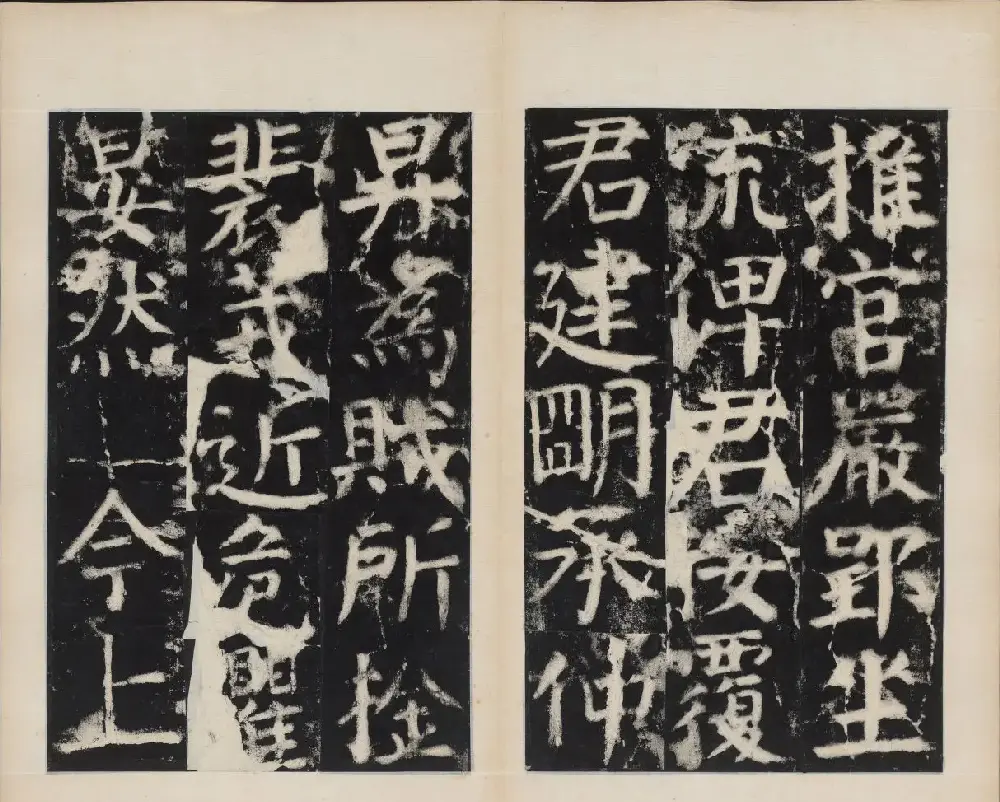 推官嚴郢坐
流俾君按覆
君建朙承仲
昇爲賊所捦
裴茙近危懼
晏然今上